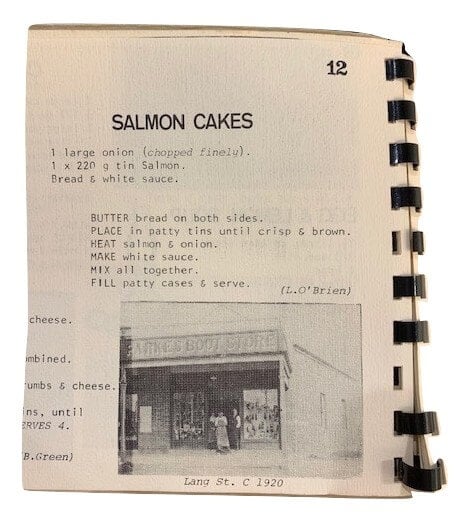 12
SALMON CAKES
1 large onion (chopped finely).
1 x 220 g tin Salmon.
Bread & white sauce.
BUTTER bread on both sides.
PLACE in patty tins until crisp & brown.
HEAT salmon & onion.
MAKE white sauce.
MIX all together.
FILL patty cases & serve.
(L.O'Brien)
cheese.
mbined.
rumbs & cheese.
ins, until
ERVES 4.
B.Green)
BOOT STORE
Lang St. C 1920